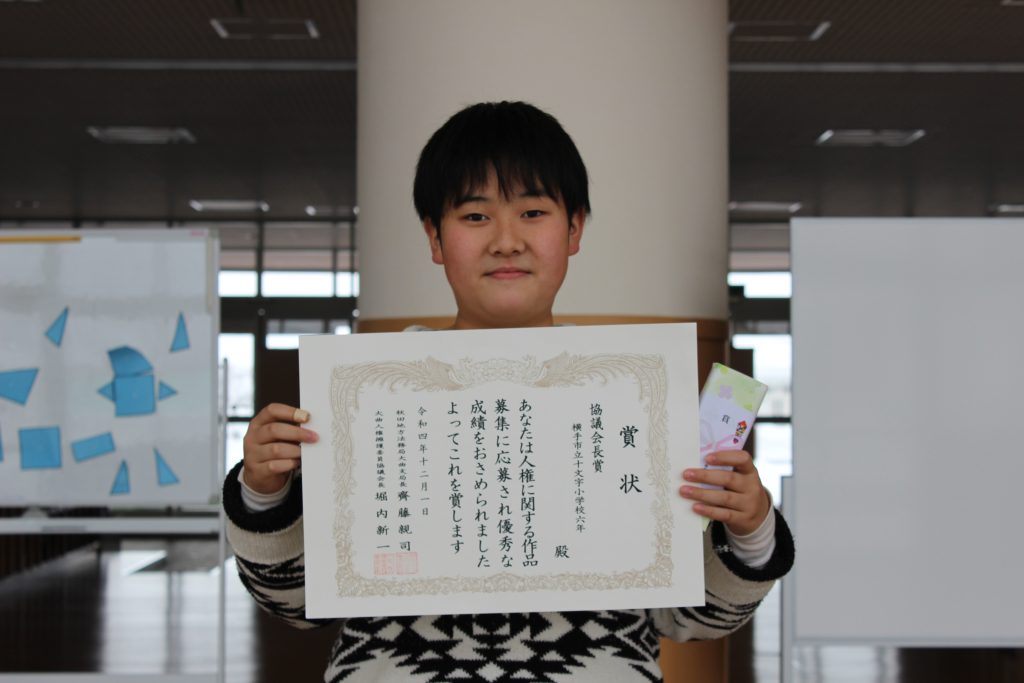 賞状
協議会長賞
横手市立十文字小学校六年
殿
あなたは人権に関する作品
募集に応募され優秀な
成績をおさめられました
よってこれを賞します
令和四年十二月一日
秋田地方法務局大曲支局長 齊藤親司
大曲人権擁護委員協議会長 堀内新一
賞